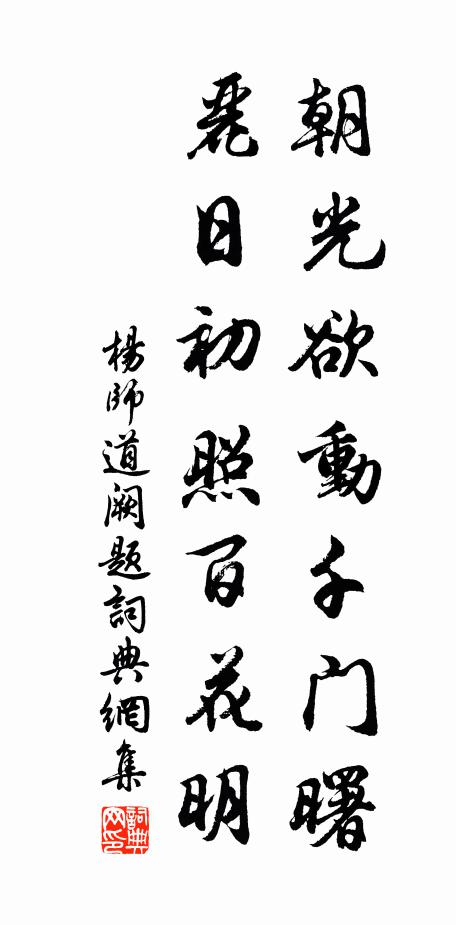 朝光欲動千门曙
麗日初照百花明
楊師道闕题詞典網集
詞典网印